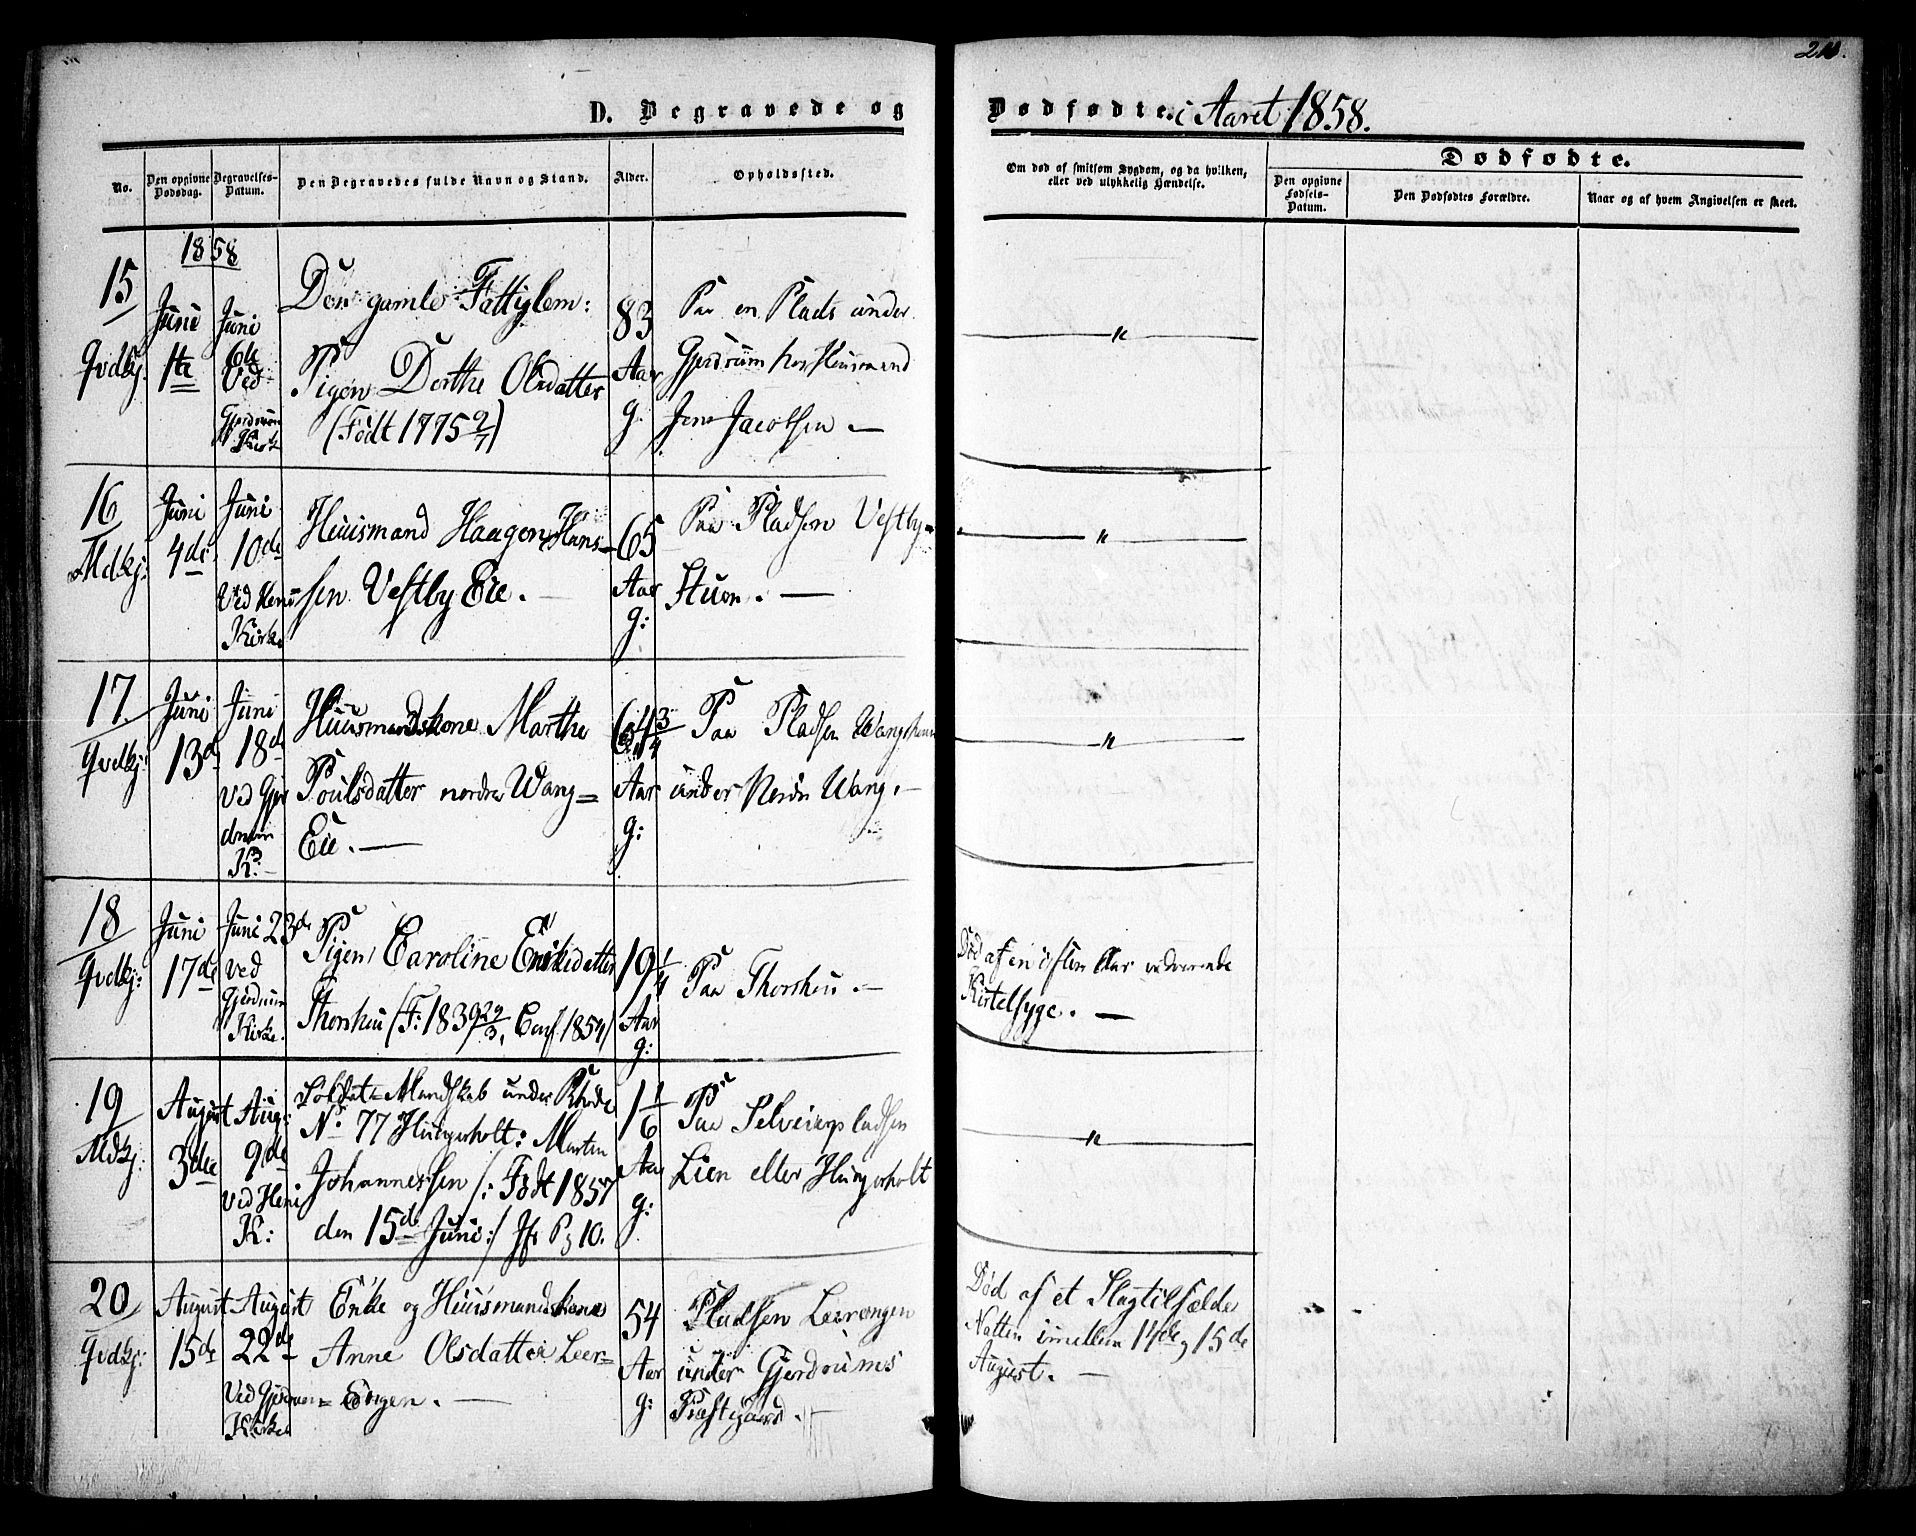 D. Begravede og
Dødfødte. i Aaret 1858.
No.
Den opgivne Dødsdag.
Begravelses-Datum.
Den Begravedes fulde Navn og Stand.
Alder.
Opholdssted.
Om død af smitsom Sygdom, og da hvilken,
eller ved ulykkelig Hændelse.
Dødfødte.
Den opgivne Fødsels-Datum.
Den Dødfødtes Forældre.
Naar og af hvem Angivelsen er skeet.
1858
15
Qvdkj.
Juni
1te
Juni
6te
Ved
Gjerdrum
Kirk
Den gamle Fattiglem:
Pigen Dorthe Olsdatter
(Født 1775 9/7)
83
Aar
g.
Paa en Plads under
Gjerdrum hos Huusmand
Jens Jacobsen —
"
16
Mdkj:
Juni
4de
Juni
10de
Ved Heni
Kirke
Huusmand Haagen Hans-
sen Vestby Eie.
65
Aar
g:
Paa Pladsen Vestby-
Stuen. —
"
17
Qvdkj:
Juni
13de
Juni
18de
Ved Gjer
drum
K.
Huusmandskone Marthe
Poulsdatter nordre Wang=
Eie. —
64 3/4
Aar
g:
Paa Pladsen
under Nordre Wang. —
"
18
Qvdkj:
Juni
17de
Juni 23de
ved
Gjerdrum
Kirke.
Pigen Caroline Eriksdatter
(F: 1839 29/3, Conf. 1854)
19 1/4
Aar
g:
Paa
Død af en
Kirtelsyge. —
19
Mdkj:
August
3die
Aug:
9de
Ved Heni
K:
Soldat-Mandskab under Rhode
No. 77 Hungerholt: Martin
Johannessen /: Født 1857
den 15de Juni:/ Jfr Pg 10.
1 1/6
Aar
g:
Paa Selveierpladsen
Lien eller Hungerholt
"
20
Qvdkj:
August
15de
August
22de
Ved Gjerdrum
Kirke
Enke og Huusmandskone
Anne Olsdatter Leer=
Engen. —
54
Aar
g:
Pladsen Leerengen
under Gjerdrums
Præstgaard.
Død af et Slagtilfælde
Natten imellem 14de og 15de
August. —